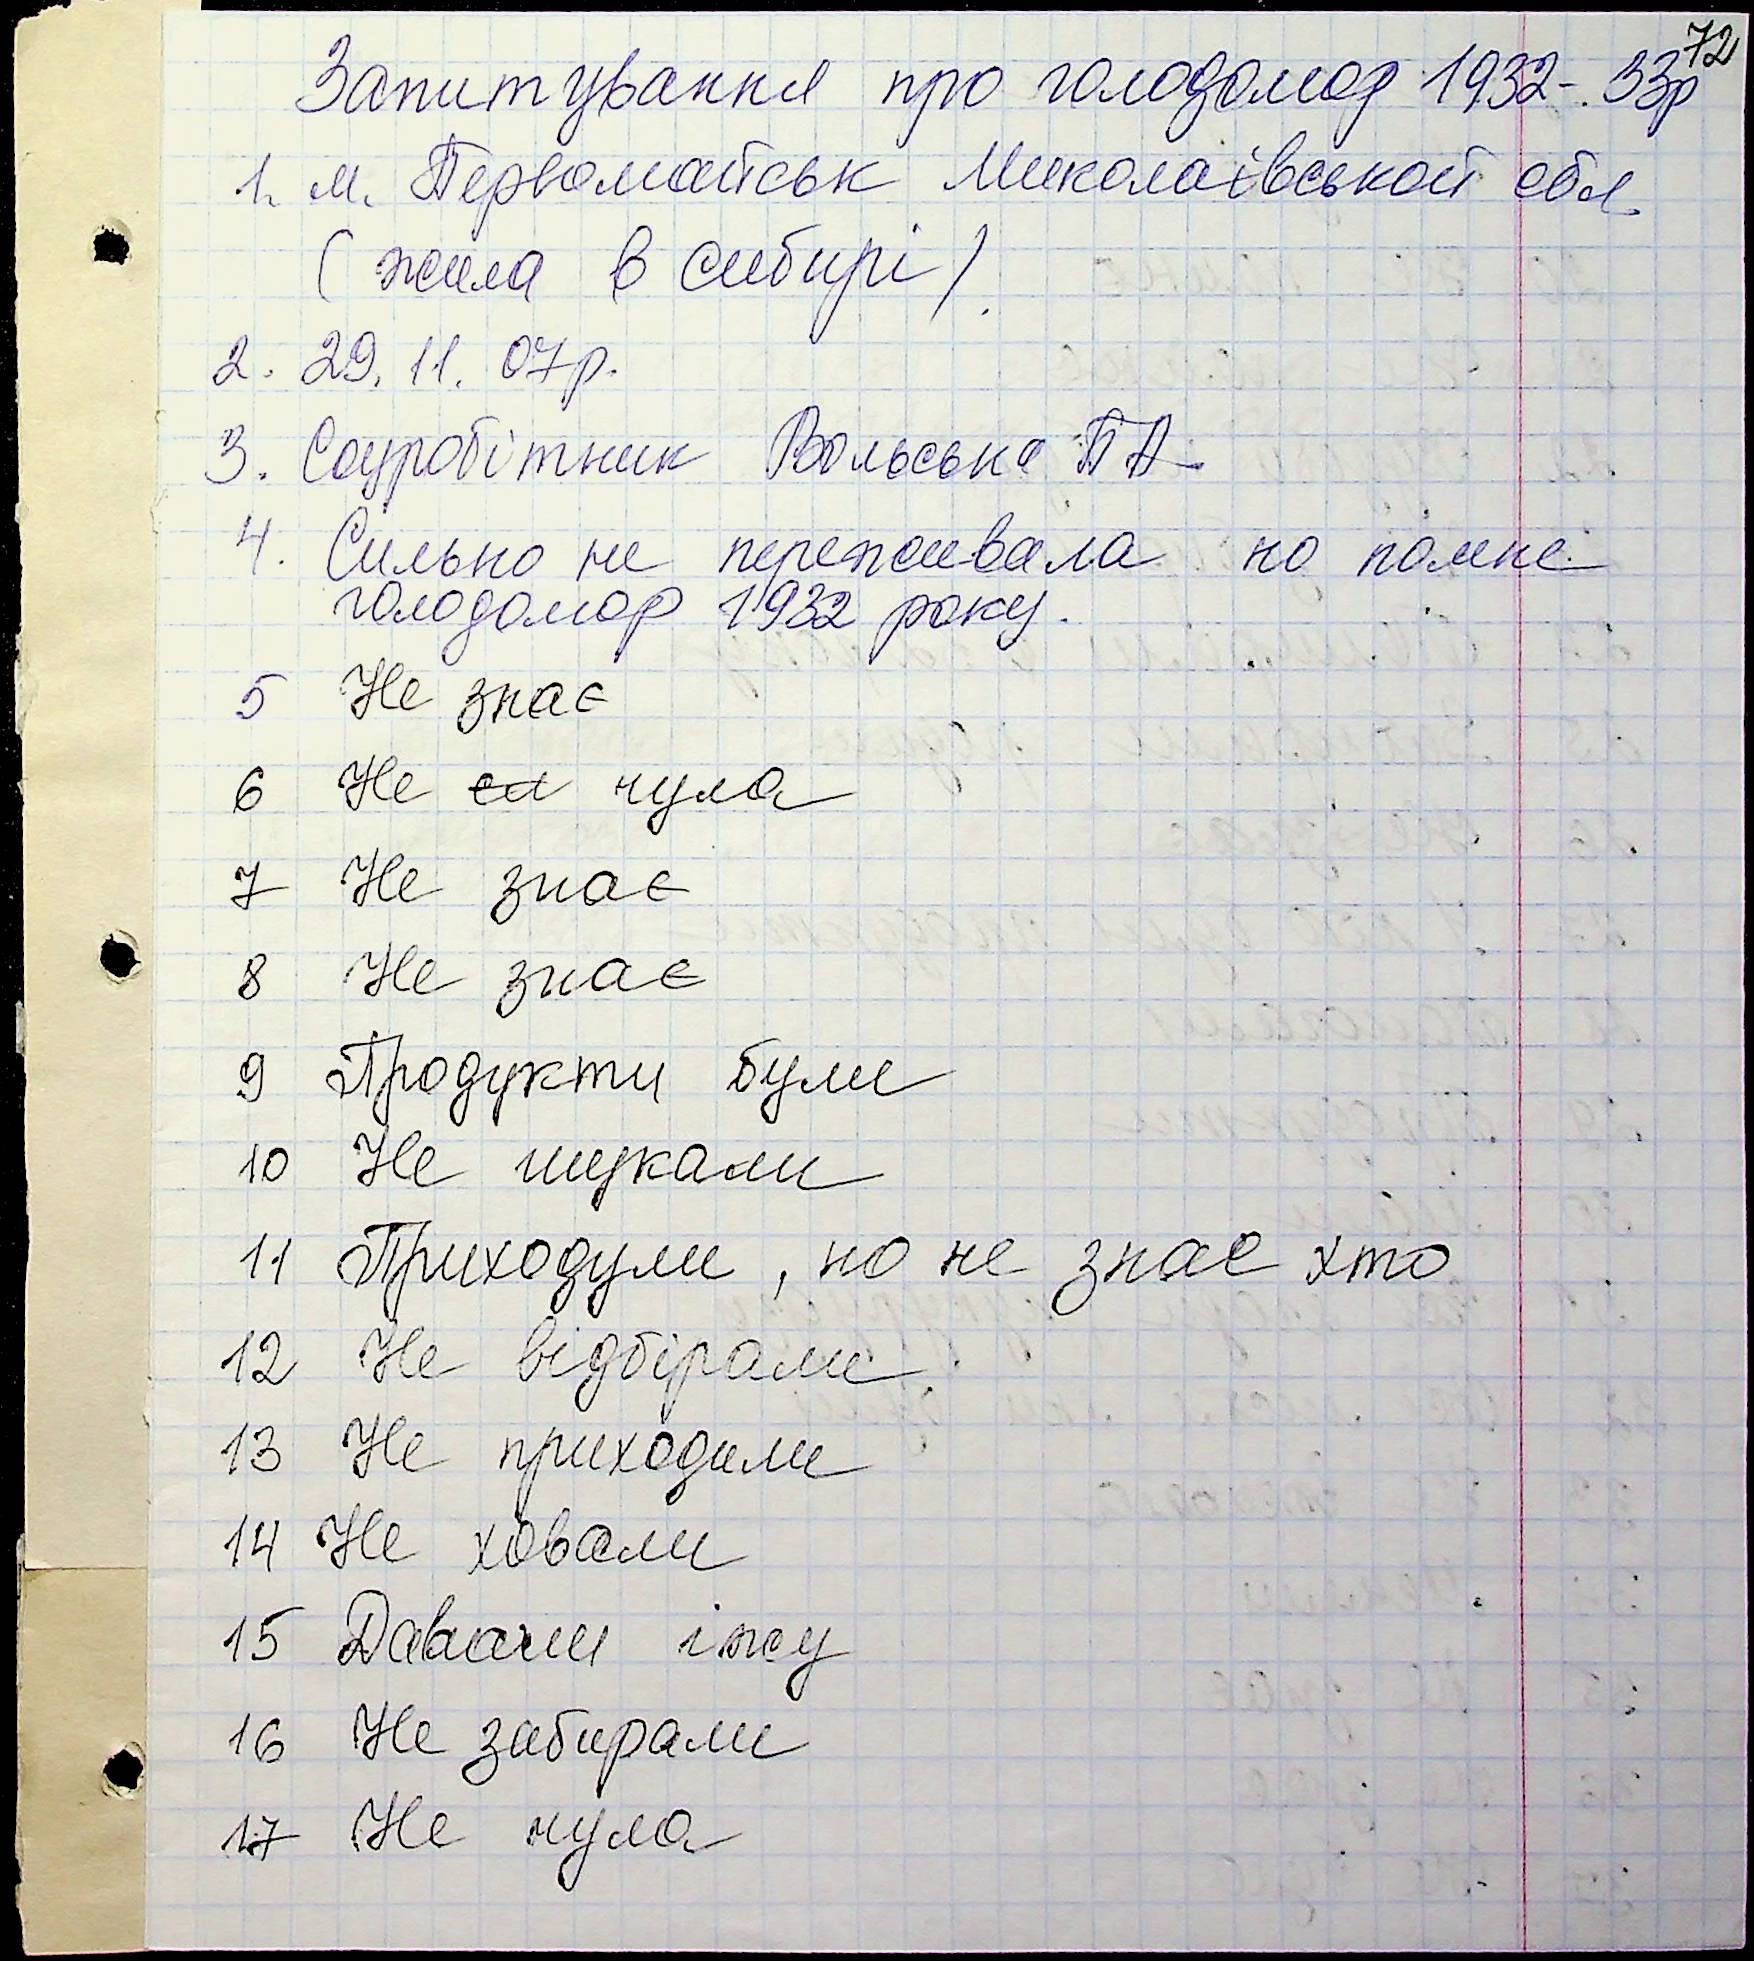 72
Запитування про голодомор 1932-33р
1. м. Первомайськ Миколаівськой обл.
(жила в сибирі).
2. 29.11.07р.
3. Соуробітник Вольська ПА
4. Сильно не переживала но помне
голодомор 1932 року.
5 Не знає
6 Не сл чула
7 Не знає
8 Не знає
9 Продукти були
10 Не шукали
11 Приходули, но не знае хто
12 Не відбірали.
13 Не приходили
14 Не ховали
15 Давали їжу
16 Не забирали
17 Не чула